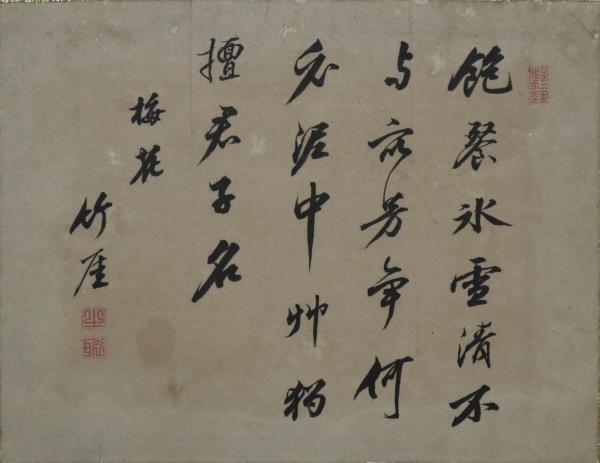 飽餐冰雪清不
与众芳争何
必泥中艸独
擅君子名
梅花
竹厓